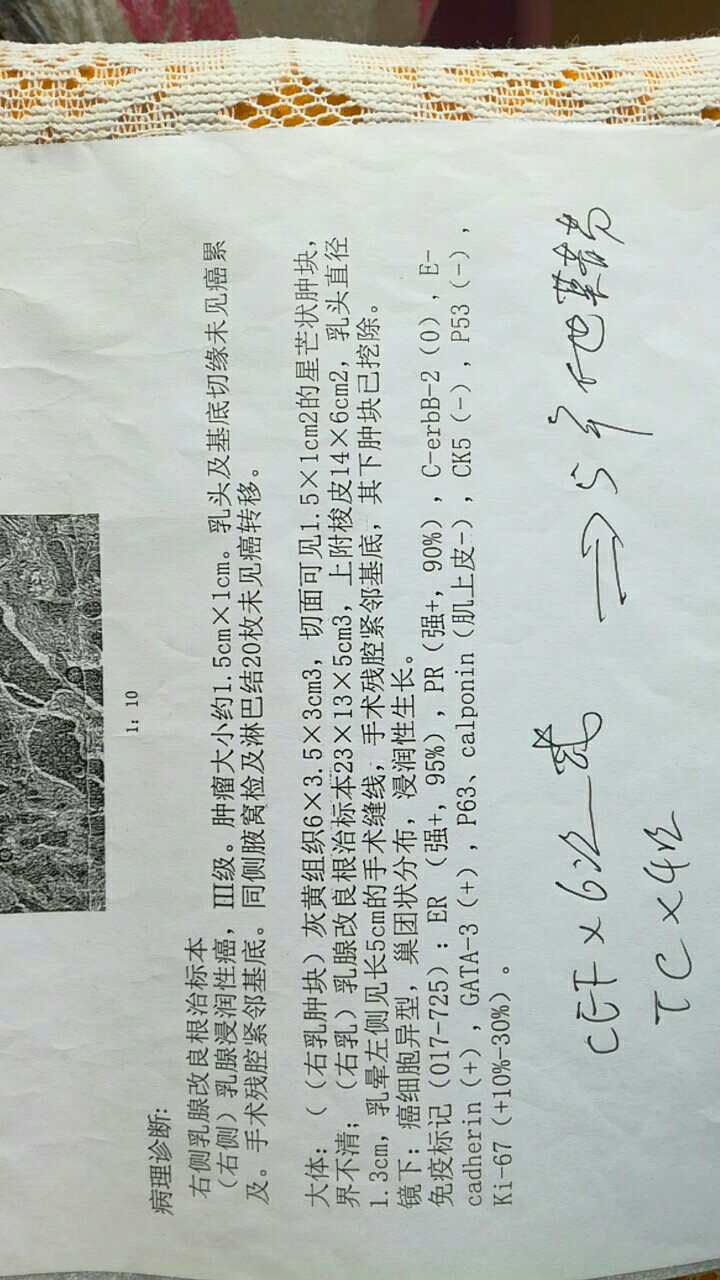 1: 10
病理诊断:
右侧乳腺改良根治标本
（右侧）乳腺浸润性癌，III级。肿瘤大小约1.5cm×1cm。乳头及基底切缘未见癌累
及。手术残腔紧邻基底。同侧腋窝检及淋巴结20枚未见癌转移。
大体：（（右乳肿块）灰黄组织6×3.5×3cm3，切面可见1.5×1cm2的星芒状肿块，
界不清；（右乳）乳腺改良根治标本23×13×5cm3，上附梭皮14×6cm2，乳头直径
1.3cm，乳晕左侧见长5cm的手术缝线，手术残腔紧邻基底，其下肿块已挖除。
镜下：癌细胞异型，巢团状分布，浸润性生长。
免疫标记（017-725）：ER（强+，95%），PR（强+，90%），C-erbB-2（0），E-
cadherin（+），GATA-3（+），P63、calponin（肌上皮-），CK5（-），P53（-），
Ki-67（+10%-30%）。
CEF×6次 或
TC×4次
⇒ 5年他莫昔芬